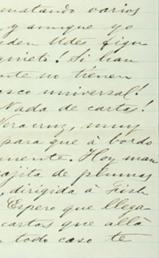 matando varios
y aunque yo
den Udes figu
quieto! Si han
nte no tienen
sco universal!
Nada de cartas!
Veracruz, muy
para que à bordo
mente. Hoy man
cajita de plumas
dirigida à
Espero que llega
cartas que allà
todo caso te